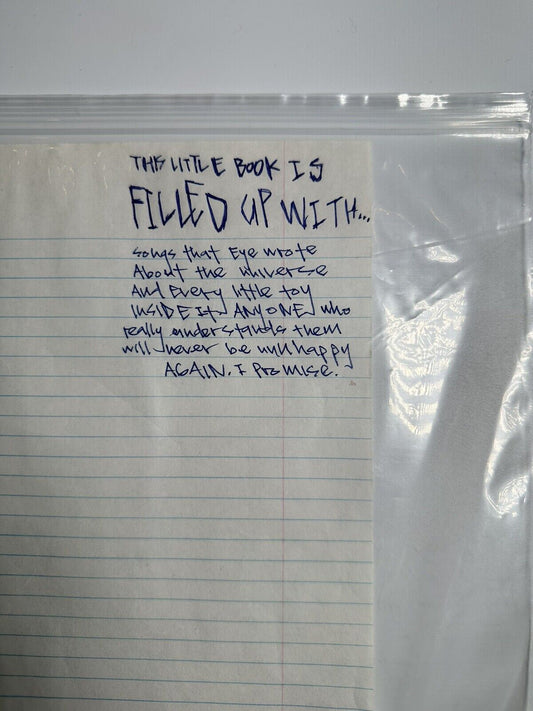 THIS LITTLE BOOK IS
FILLED UP WITH...
songs that Eye wrote
About the universe
And Every little toy
INSIDE IT ANYONE who
really understands them
will never be unhappy
AGAIN. I PROMISE.